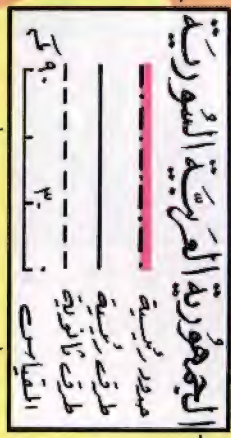 الجمهورية العربية السورية
حدود رئيسية
طرق رئيسية
طرق ثانوية
المقياس
٠ ٣٠ ٩٠ كم